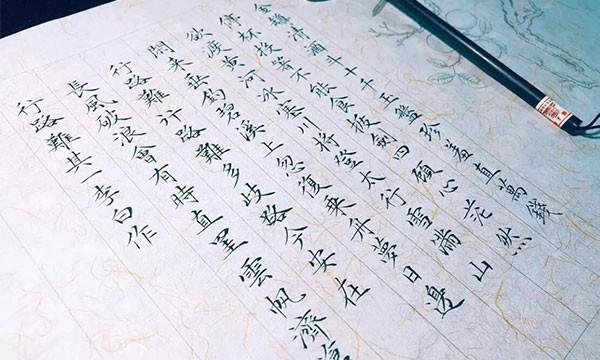 金罇清酒斗十千玉盤珍羞直萬錢
停杯投箸不能食拔劍四顧心茫然
欲渡黃河冰塞川將登太行雪滿山
閒来垂釣碧溪上忽復乘舟夢日邊
行路難行路難多歧路今安在
長風破浪會有時直挂雲帆濟滄
行路難其一李白作